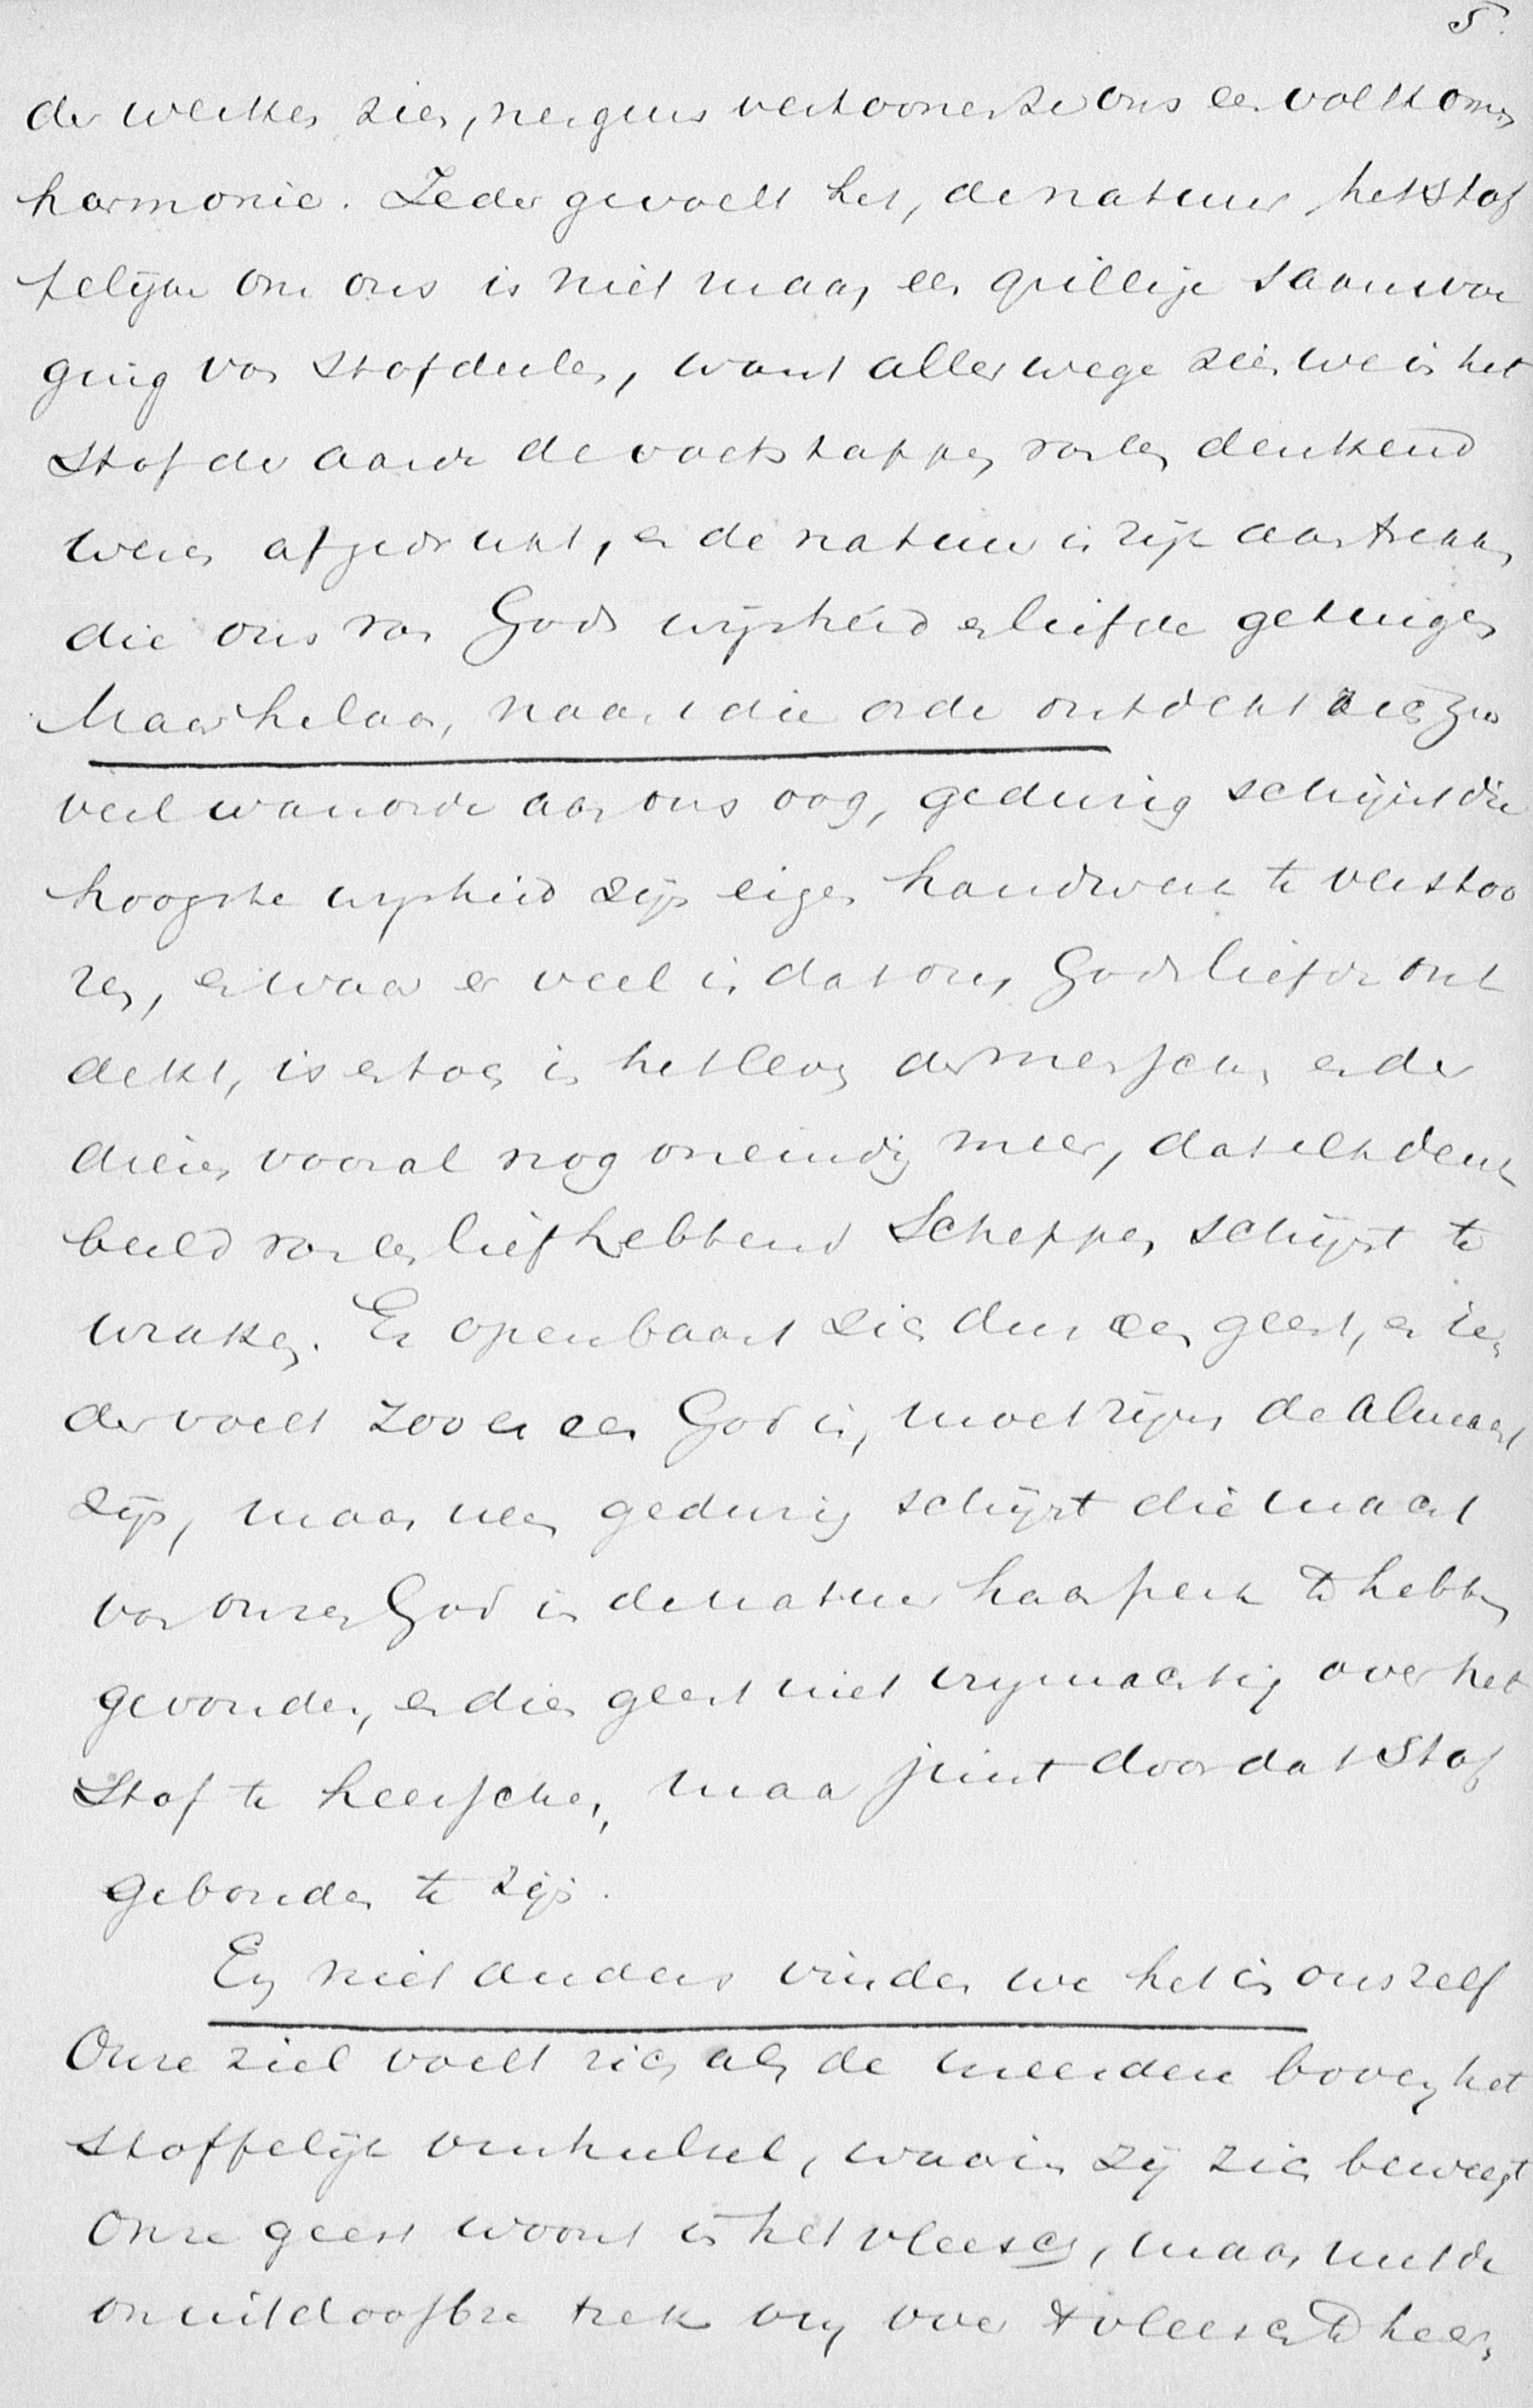 5.
der werken zien, nergens vertoonen ze ons een volkomen
harmonie. Ieder gevoelt het, de natuur, het stof
felijke om ons is niet maar een grillige saamvoe
ging van stofdeelen, want allerwege zien we in het
stof der aarde de voetstappen van een denkend
wezen afgedrukt, en de natuur is rijk aan trekken
die ons van Gods wijsheid en liefde getuigen
Maar helaas, naast die orde ontdekt zich zoo
veel wanorde aan ons oog, gedurig schijnt die
hoogste wijsheid zijn eigen handwerk te verstoo
ren, en waar er veel is dat ons Gods liefde ont
dekt, is er toch in het leven der menschen en der
dieren vooral nog oneindig meer, dat elk denk
beeld van een liefhebbend Schepper schijnt te
wraken. Er openbaart zich dus een geest, en ie
der voelt zoo er een God is, moet zijns de almacht
zijn, maar neen gedurig schijnt die macht
van onzen God in de natuur haar perk te hebben
gevonden, en die geest niet vrijmachtig over het
stof te heerschen, maar juist door dat stof
gebonden te zijn.
En niet anders vinden we het in ons zelf
Onze ziel voelt zich als de meerdere boven het
stoffelijk omhulsel, waarin zij zich beweegt
Onze geest woont in het vleesch, maar met de
onuitdoofbre trek om over 't vleesch te heer